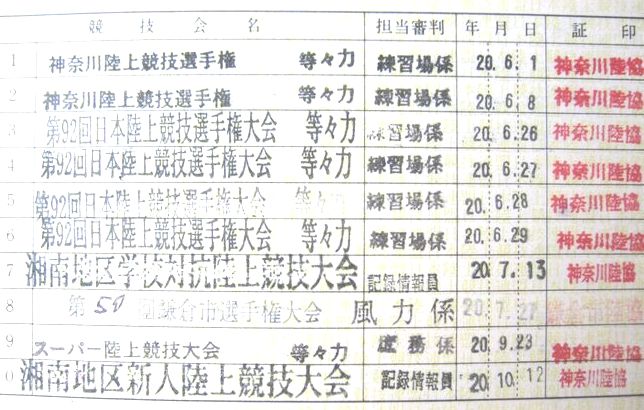 競技会名 担当審判 年月日 証印
1 神奈川陸上競技選手権 等々力 練習場係 20.6.1 神奈川陸協
2 神奈川陸上競技選手権 等々力 練習場係 20.6.8 神奈川陸協
3 第92回日本陸上競技選手権大会 等々力 練習場係 20.6.26 神奈川陸協
4 第92回日本陸上競技選手権大会 等々力 練習場係 20.6.27 神奈川陸協
5 第92回日本陸上競技選手権大会 等々力 練習場係 20.6.28 神奈川陸協
6 第92回日本陸上競技選手権大会 等々力 練習場係 20.6.29 神奈川陸協
7 湘南地区学校対抗陸上競技大会 記録情報員 20.7.13 神奈川陸協
8 第50回鎌倉市選手権大会 風力係 20.7.27
9 スーパー陸上競技大会 等々力 庶務係 20.9.23 神奈川陸協
0 湘南地区新人陸上競技大会 記録情報員 20.10.12 神奈川陸協